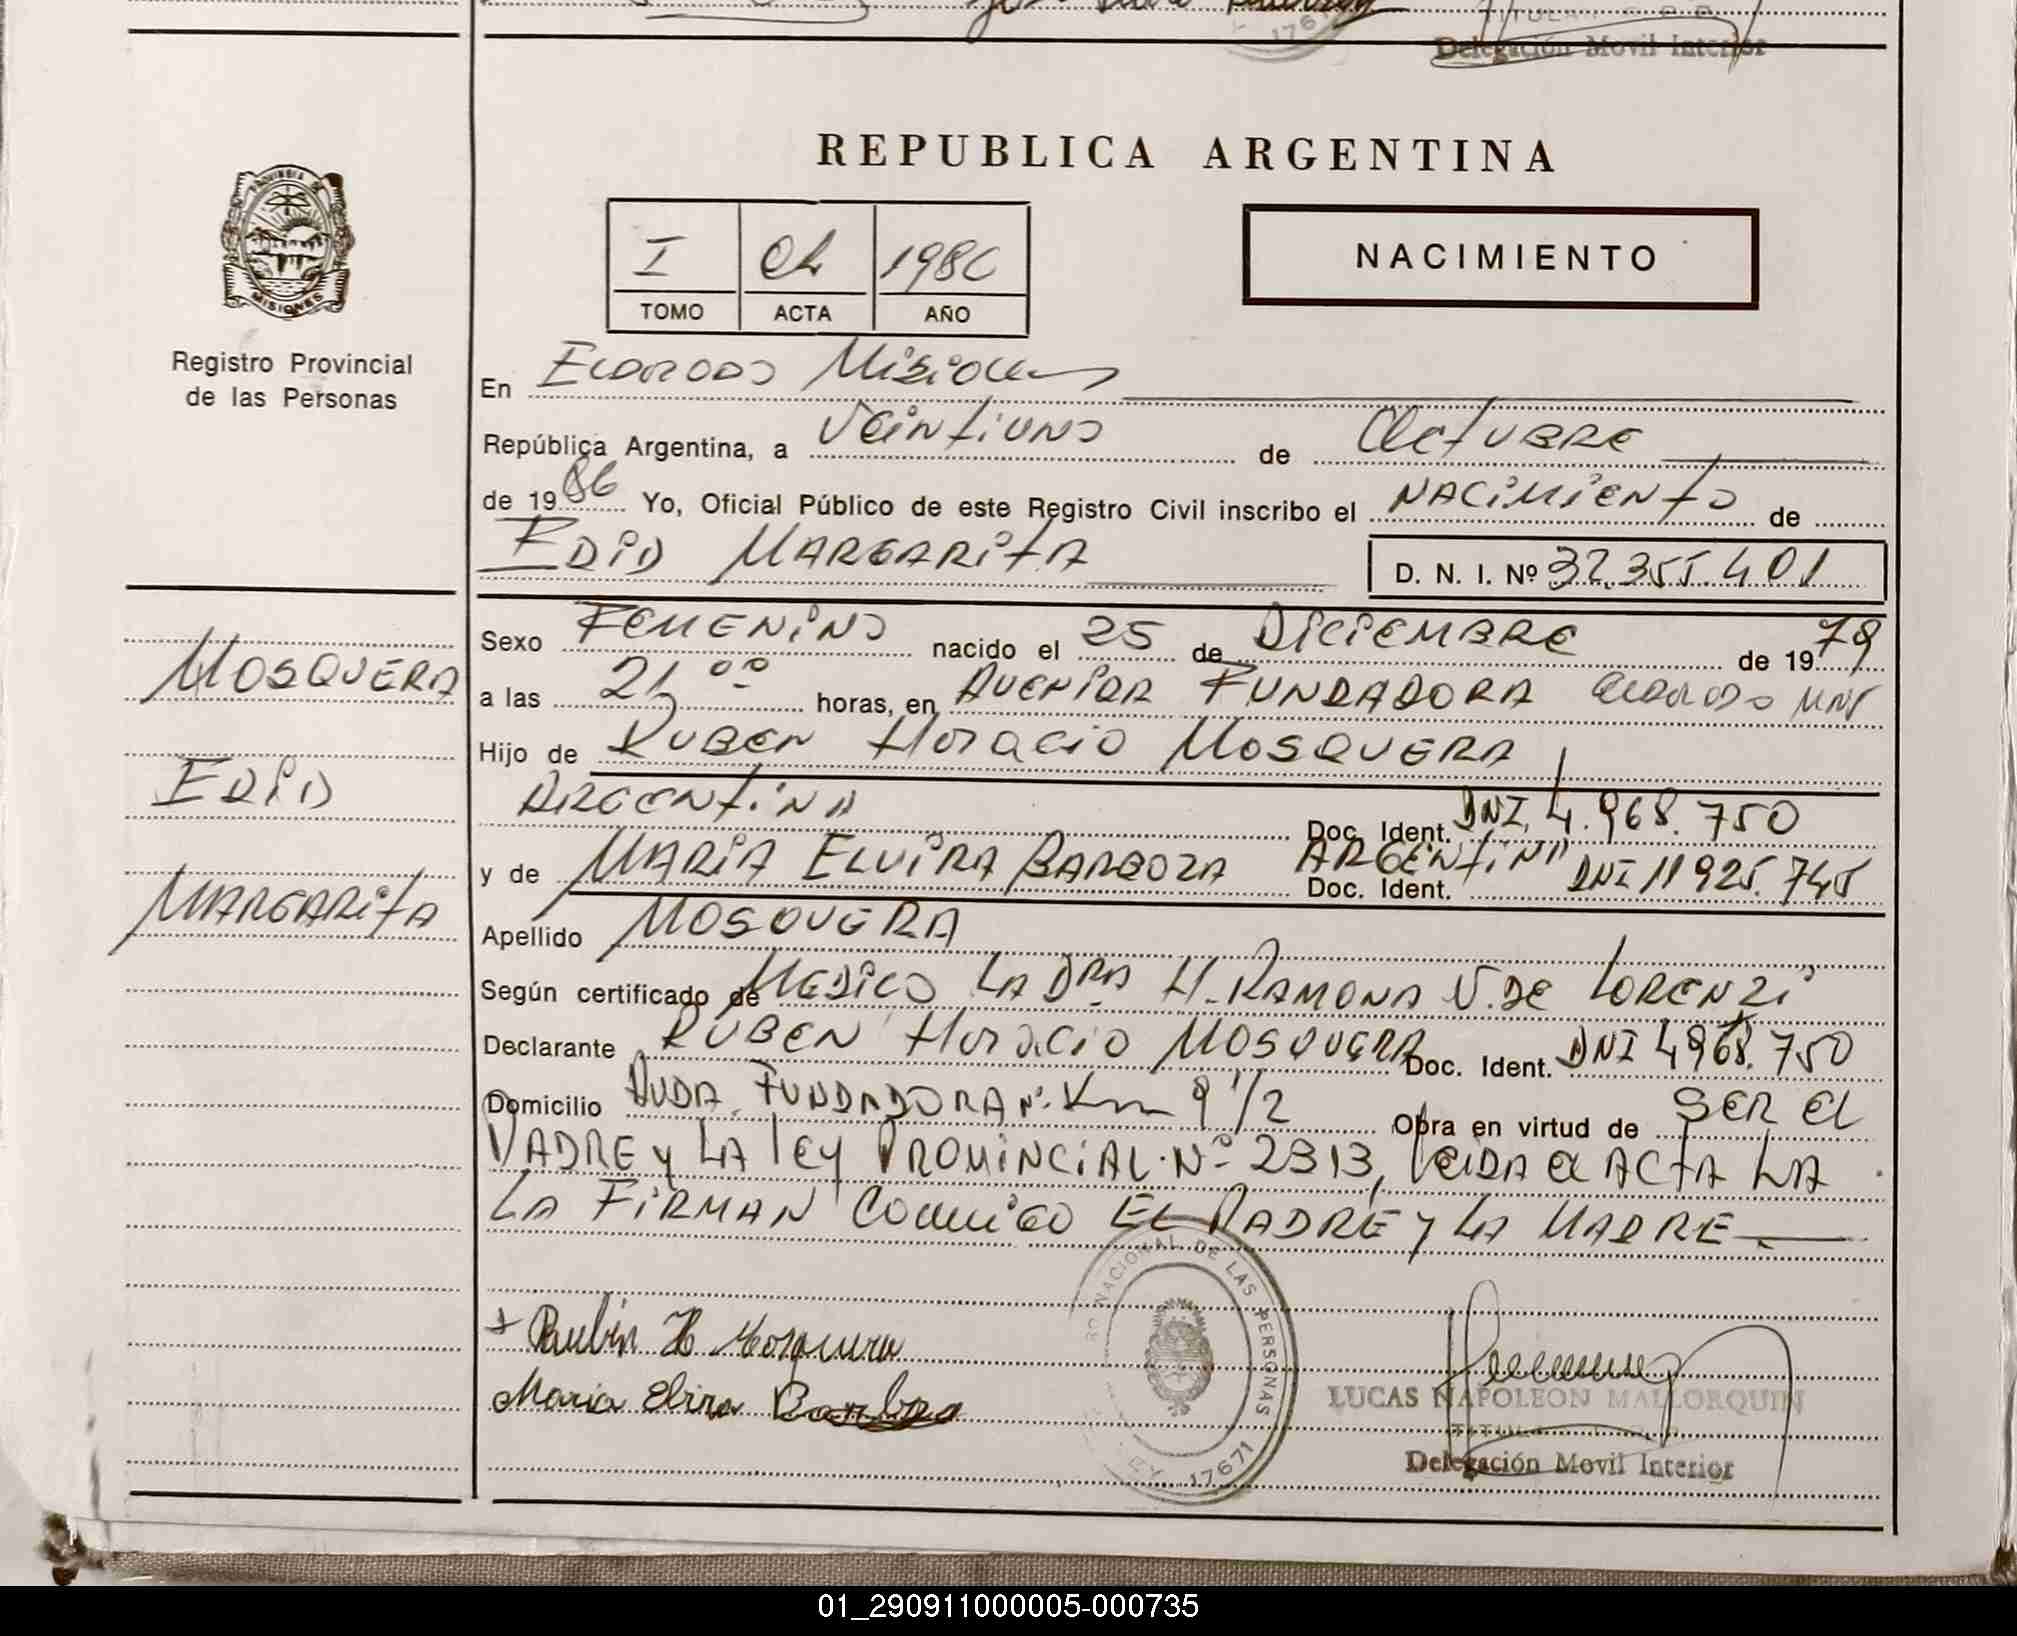 Delegación Movil Interior
REPUBLICA ARGENTINA
PROVINCIA DE
MISIONES
Registro Provincial
de las Personas
I
1986
TOMO ACTA AÑO
NACIMIENTO
En ELDORADO MISIONES
República Argentina, a VEINTIUNO de OCTUBRE
de 1986 Yo, Oficial Público de este Registro Civil inscribo el NACIMIENTO de
EDID MARGARITA D. N. I. Nº 32.355.401
Sexo FEMENINO nacido el 25 de DICIEMBRE de 1979
a las 21 00 horas, en AVENIDA FUNDADORA ELDORADO MNS
Hijo de RUBEN HORACIO MOSQUERA
ARGENTINA Doc. Ident. DNI. 4.968.750
y de MARIA ELVIRA BARBOZA ARGENTINA Doc. Ident. DNI 11 925.745
Apellido MOSQUERA
Según certificado de MEDICO LA DRA H. RAMONA V. DE LORENZI
Declarante RUBEN HORACIO MOSQUERA Doc. Ident. DNI 4968.750
Domicilio AVDA. FUNDADORA Nº. Km 9 1/2 Obra en virtud de SER EL
PADRE Y LA LEY PROVINCIAL. Nº 2313, LEIDA EL ACTA LA
LA FIRMAN CONMIGO EL PADRE Y LA MADRE
MOSQUERA
EDID
MARGARITA
Rubén H Mosquera
Maria Elvira Barboza
NACIONAL DE LAS PERSONAS
LEY 17671
LUCAS NAPOLEON MALLORQUIN
TITULAR
Delegación Movil Interior
01_290911000005-000735